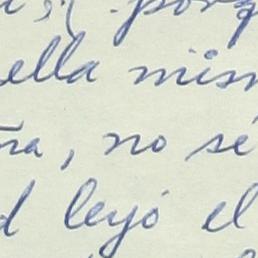 porq
ella mism
ña, no sé
d leyó el